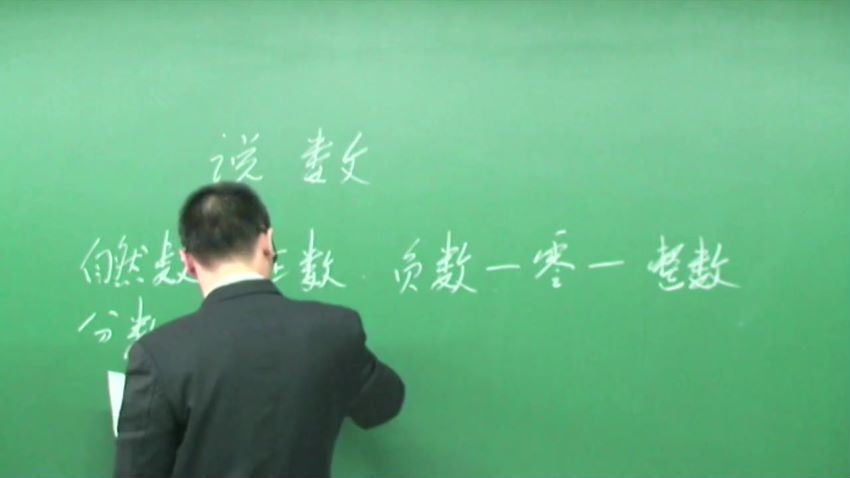 说 数
自然数 数. 负数一零一整数
分数